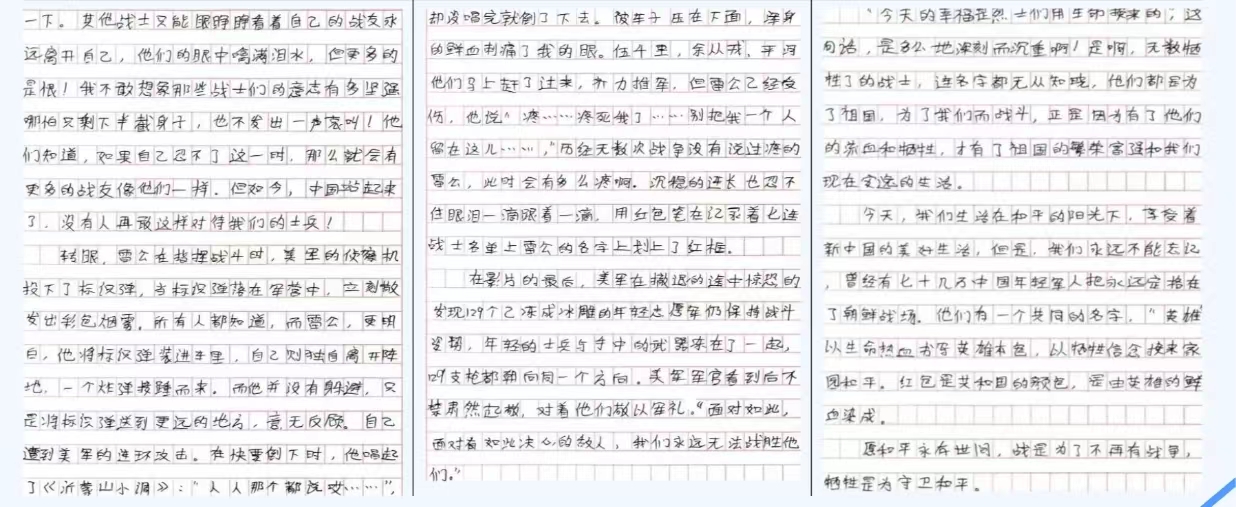 一下。其他战士只能眼睁睁看着自己的战友永
远离开自己，他们的眼中噙满泪水，但更多的
是恨！我不敢想象那些战士们的意志有多坚强
哪怕只剩下半截身子，也不发出一声哀叫！他
们知道，如果自己忍不了这一时，那么就会有
更多的战友像他们一样。但如今，中国站起来
了，没有人再敢这样对待我们的士兵！
转眼，雷公在指挥战斗时，美军的侦察机
投下了标识弹，当标识弹落在军营中，立刻散
发出彩色烟雾。所有人都知道，而雷公，更明
白，他将标识弹装进车里，自己则独自离开阵
地，一个炸弹接踵而来。而他并没有躲避，只
是将标识弹送到更远的地方，毫无反顾。自己
遭到美军的连环攻击。在快要倒下时，他唱起
了《沂蒙山小调》：“人人那个都说哎……”，
却没唱完就倒了下去。被车子压在下面，浑身
的鲜血刺痛了我的眼。伍千里，余从戎，平河
他们马上赶了过来，齐力推车，但雷公已经受
伤，他说“疼……疼死我了……别把我一个人
留在这儿……，”历经无数次战争没有说过疼的
雷公，此时会有多么疼啊。沉稳的连长也忍不
住眼泪一滴跟着一滴，用红色笔在记录着七连
战士名单上雷公的名字上划上了红框。
在影片的最后，美军在撤退的途中惊恐的
发现129个已冻成冰雕的年轻志愿军仍保持战斗
姿势，年轻的士兵与手中的武器冻在了一起，
129支枪都朝向同一个方向。美军军官看到后不
禁肃然起敬，对着他们敬以军礼。“面对如此，
面对着如此决心的敌人，我们永远无法战胜他
们。”
“今天的幸福是烈士们用生命换来的”，这
句话，是多么地深刻而沉重啊！是啊，无数牺
牲了的战士，连名字都无从知晓，他们都是为
了祖国，为了我们而战斗，正是因为有了他们
的流血和牺牲，才有了祖国的繁荣富强和我们
现在安逸的生活。
今天，我们生活在和平的阳光下，享受着
新中国的美好生活，但是，我们永远不能忘记
，曾经有七十几万中国年轻军人把永远定格在
了朝鲜战场。他们有一个共同的名字，“英雄”
以生命热血书写英雄本色，以牺牲信念换来家
园和平。红色是共和国的颜色，是由英雄的鲜
血染成。
愿和平永存世间，战是为了不再有战争，
牺牲是为守卫和平。